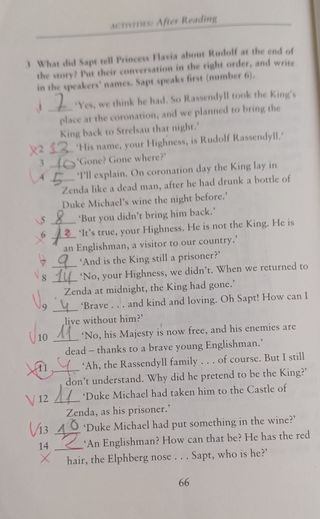 ACTIVITIES: After Reading
3 What did Sapt tell Princess Flavia about Rudolf at the end of
the story? Put their conversation in the right order, and write
in the speakers' names. Sapt speaks first (number 6).
1 7 'Yes, we think he had. So Rassendyll took the King's
place at the coronation, and we planned to bring the
King back to Strelsau that night.'
2 'His name, your Highness, is Rudolf Rassendyll.'
3 10 'Gone? Gone where?'
4 5 'I'll explain. On coronation day the King lay in
Zenda like a dead man, after he had drunk a bottle of
Duke Michael's wine the night before.'
5 8 'But you didn't bring him back.'
6 'It's true, your Highness. He is not the King. He is
an Englishman, a visitor to our country.'
7 9 'And is the King still a prisoner?'
8 14 'No, your Highness, we didn't. When we returned to
Zenda at midnight, the King had gone.'
9 4 'Brave . . . and kind and loving. Oh Sapt! How can I
live without him?'
10 11 'No, his Majesty is now free, and his enemies are
dead – thanks to a brave young Englishman.'
11 'Ah, the Rassendyll family . . . of course. But I still
don't understand. Why did he pretend to be the King?'
12 'Duke Michael had taken him to the Castle of
Zenda, as his prisoner.'
13 'Duke Michael had put something in the wine?'
14 2 'An Englishman? How can that be? He has the red
hair, the Elphberg nose . . . Sapt, who is he?'
66